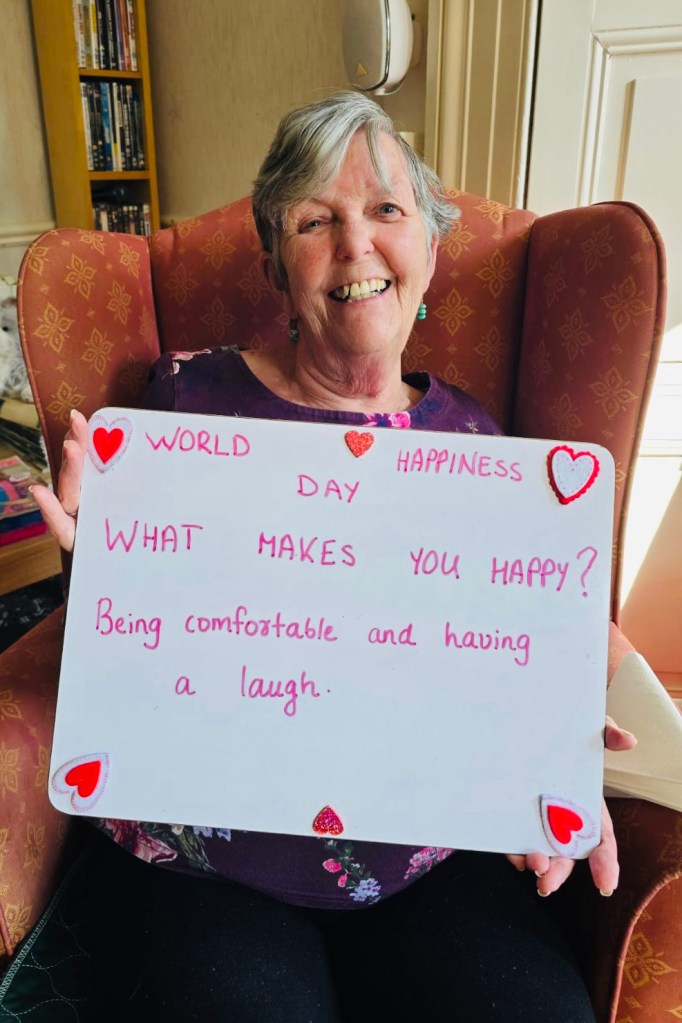 WORLD HAPPINESS
DAY
WHAT MAKES YOU HAPPY?
Being comfortable and having
a laugh.